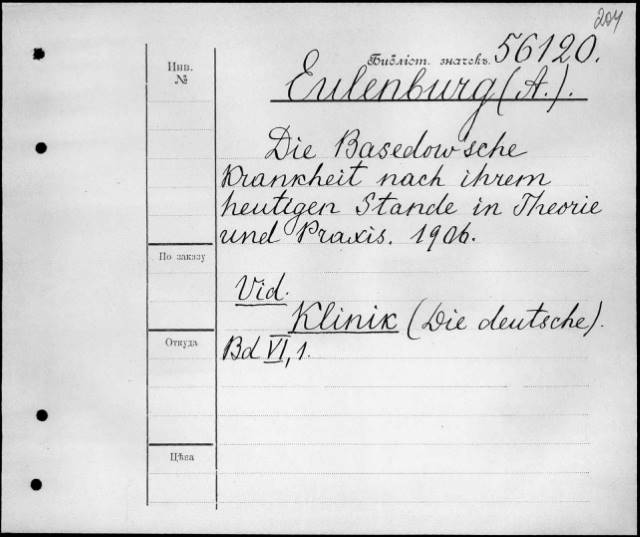 204
Инв.
№
Библіот. значекъ. 56120.
Eulenburg (A.).
Die Basedow'sche
Krankheit nach ihrem
heutigen Stande in Theorie
und Praxis. 1906.
По заказу
Vid.
Klinik (Die deutsche).
Откуда
Bd VI, 1.
Цѣна